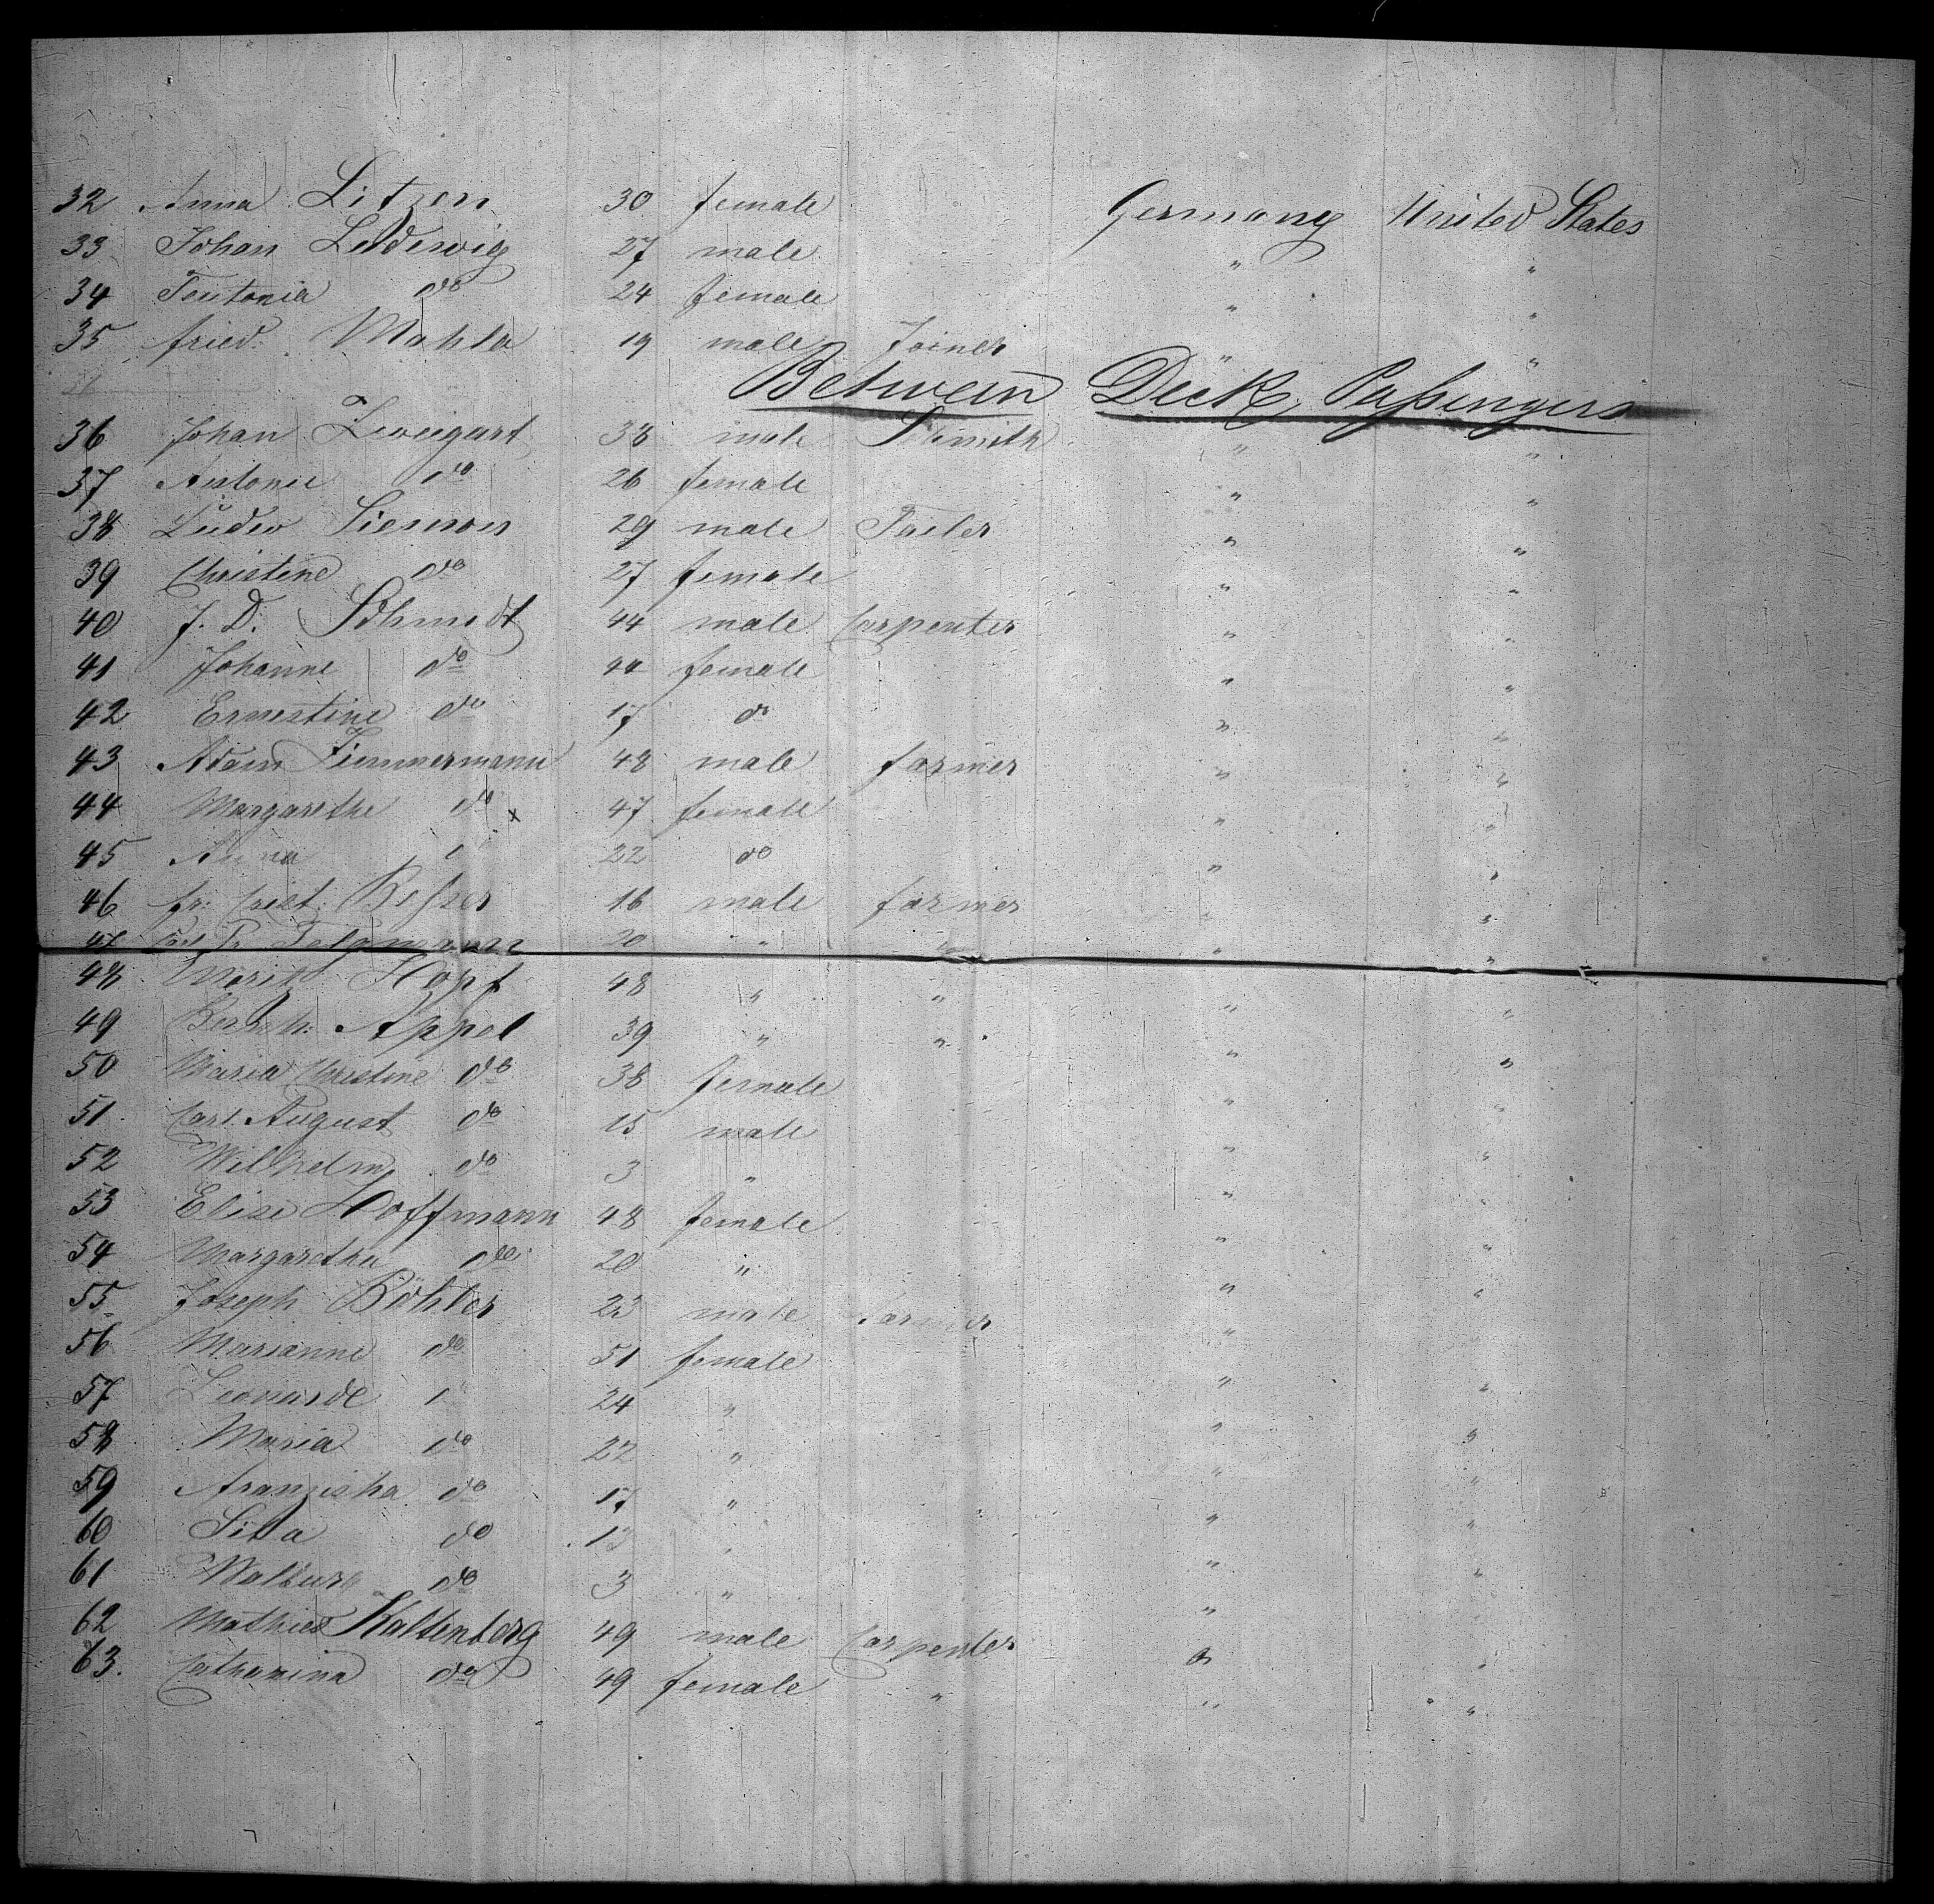 32 Anna Litzen 30 female Germany United States
33 Johan Ledewig 27 male " "
34 Teutonia do 24 female " "
35 fried. Mahla 19 male Joiner " "
Between Deck Passengers
36 Johan Zweigart 38 male " "
37 Antonie do 26 female " "
38 Ludew Siemon 29 male Tailer " "
39 Christine do 27 female " "
40 J. D. Schmidt 44 male Carpenter " "
41 Johanne do 44 female " "
42 Ernestine do 17 do " "
43 Adam Zimmermann 48 male farmer " "
44 Margarethe do x 47 female " "
45 Anna 22 do " "
46 fr: Crist: Besser 16 male farmer " "
47 Carl 20 " " " "
48 Moritz Hopf 48 " " " "
49 Bernh: Appel 39 " " " "
50 Maria Christine do 38 female " "
51 Carl August do 15 male " "
52 Wilhelm do 3 " " "
53 Elise Hoffmann 48 female " "
54 Margarethe do 20 " " "
55 Joseph Böhler 23 male farmer " "
56 Marianne do 51 female " "
57 24 " " "
58 Maria do 22 " " "
59 Franziska do 17 " " "
60 do 13 " " "
61 Walburg do 3 " " "
62 Mathies Kaltenberg 49 male Carpenter " "
63. Catharina do 49 female " " "